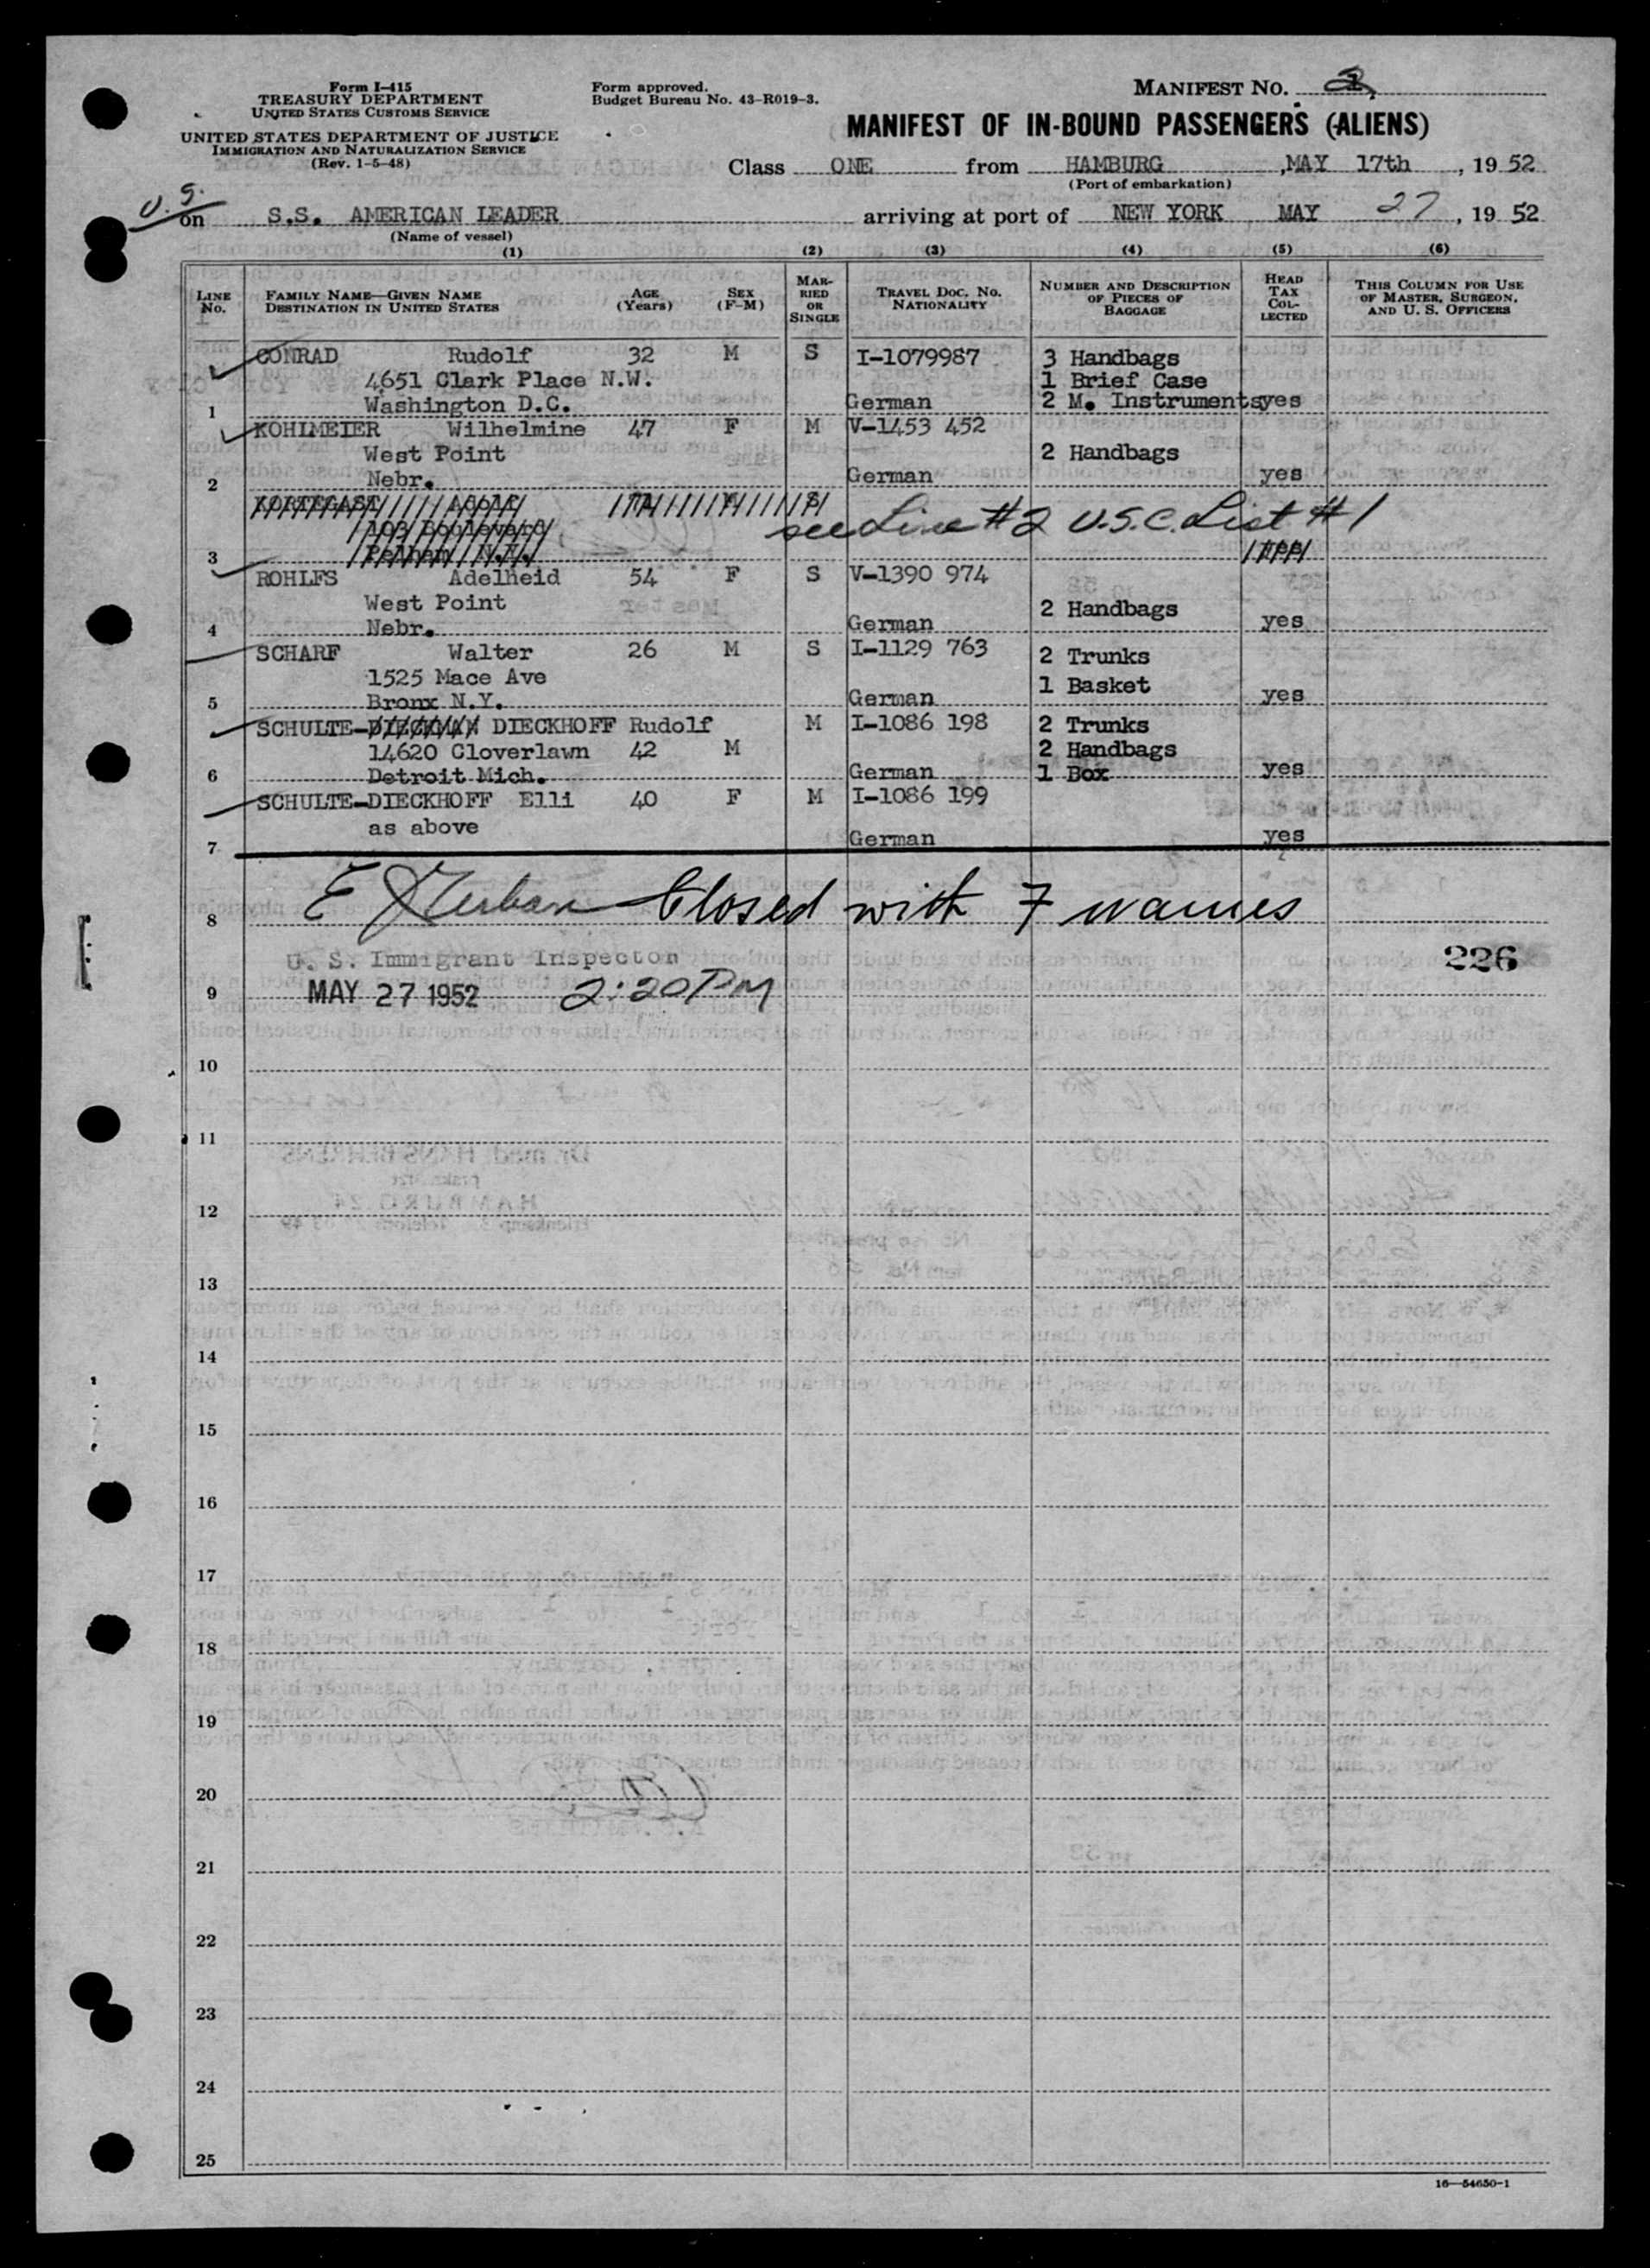 Form I-415
TREASURY DEPARTMENT
UNITED STATES CUSTOMS SERVICE
UNITED STATES DEPARTMENT OF JUSTICE
IMMIGRATION AND NATURALIZATION SERVICE
(Rev. 1-5-48)
Form approved.
Budget Bureau No. 43-R019-3.
MANIFEST NO.
MANIFEST OF IN-BOUND PASSENGERS (ALIENS)
Class ONE from HAMBURG, MAY 17th, 19 52
(Port of embarkation)
U.S.
on S.S. AMERICAN LEADER arriving at port of NEW YORK MAY 27, 19 52
(Name of vessel)
(1) (2) (3) (4) (5) (6)
LINE No. FAMILY NAME—GIVEN NAME DESTINATION IN UNITED STATES AGE (Years) SEX (F-M) MARRIED OR SINGLE TRAVEL DOC. NO. NATIONALITY NUMBER AND DESCRIPTION OF PIECES OF BAGGAGE HEAD TAX COLLECTED THIS COLUMN FOR USE OF MASTER, SURGEON, AND U. S. OFFICERS
CONRAD Rudolf 32 M S I-1079987 3 Handbags
4651 Clark Place N.W. 1 Brief Case
1 Washington D.C. German 2 M. Instruments yes
KOHLMEIER Wilhelmine 47 F M V-1453 452
West Point 2 Handbags
2 Nebr. German yes
KORTEGAST
see Line #2 U.S.C. List #1
3 Pelham N.Y.
ROHLFS Adelheid 54 F S V-1390 974
West Point 2 Handbags
4 Nebr. German yes
SCHARF Walter 26 M S I-1129 763 2 Trunks
1525 Mace Ave 1 Basket
5 Bronx N.Y. German yes
SCHULTE- DIECKHOFF Rudolf M I-1086 198 2 Trunks
14620 Cloverlawn 42 M 2 Handbags
6 Detroit Mich. German 1 Box yes
SCHULTE-DIECKHOFF Elli 40 F M I-1086 199
as above
7 German yes
8 Closed with 7 names
U. S. Immigrant Inspector 226
9 MAY 27 1952 2:20 PM
10
11
12
13
14
15
16
17
18
19
20
21
22
23
24
25
16—54650-1